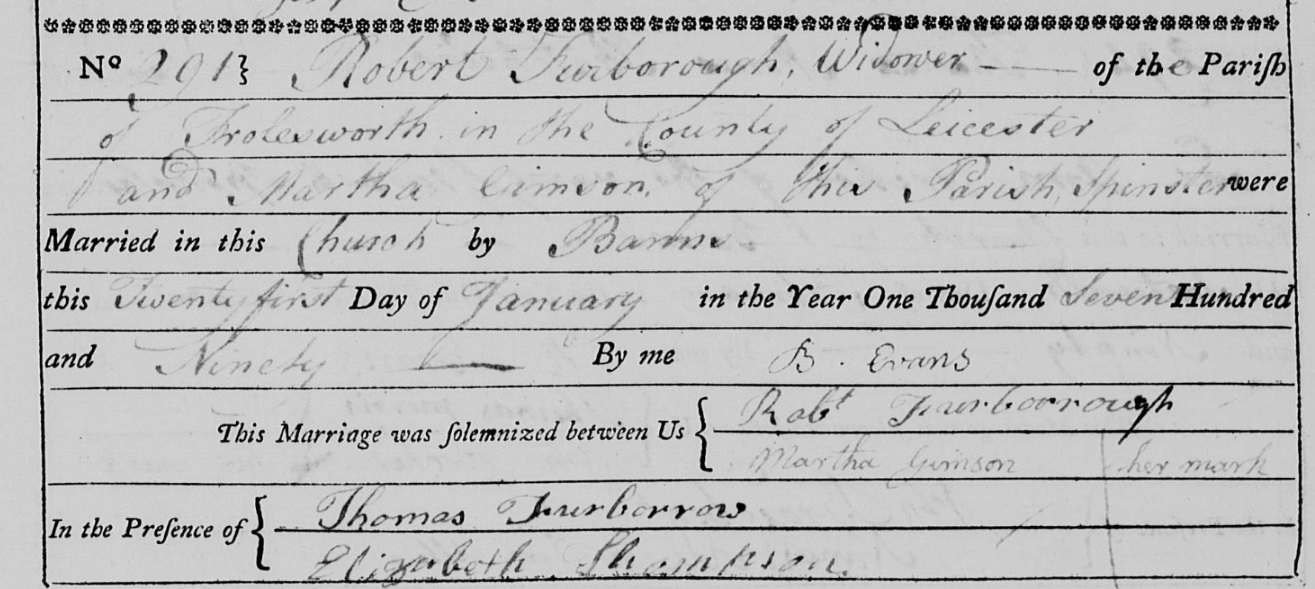 Nº 291} Robert Furborough, Widower — of the Pariſh
of Frolesworth in the County of Leicester
and Martha Gimson, of this Parish, Spinster were
Married in this Church by Banns
this Twenty first Day of January in the Year One Thouſand Seven Hundred
and Ninety — By me B. Evans
This Marriage was ſolemnized between Us { Robt Furborrough
Martha Gimson her mark
In the Preſence of { Thomas Furborrow
Elizabeth Thompson.